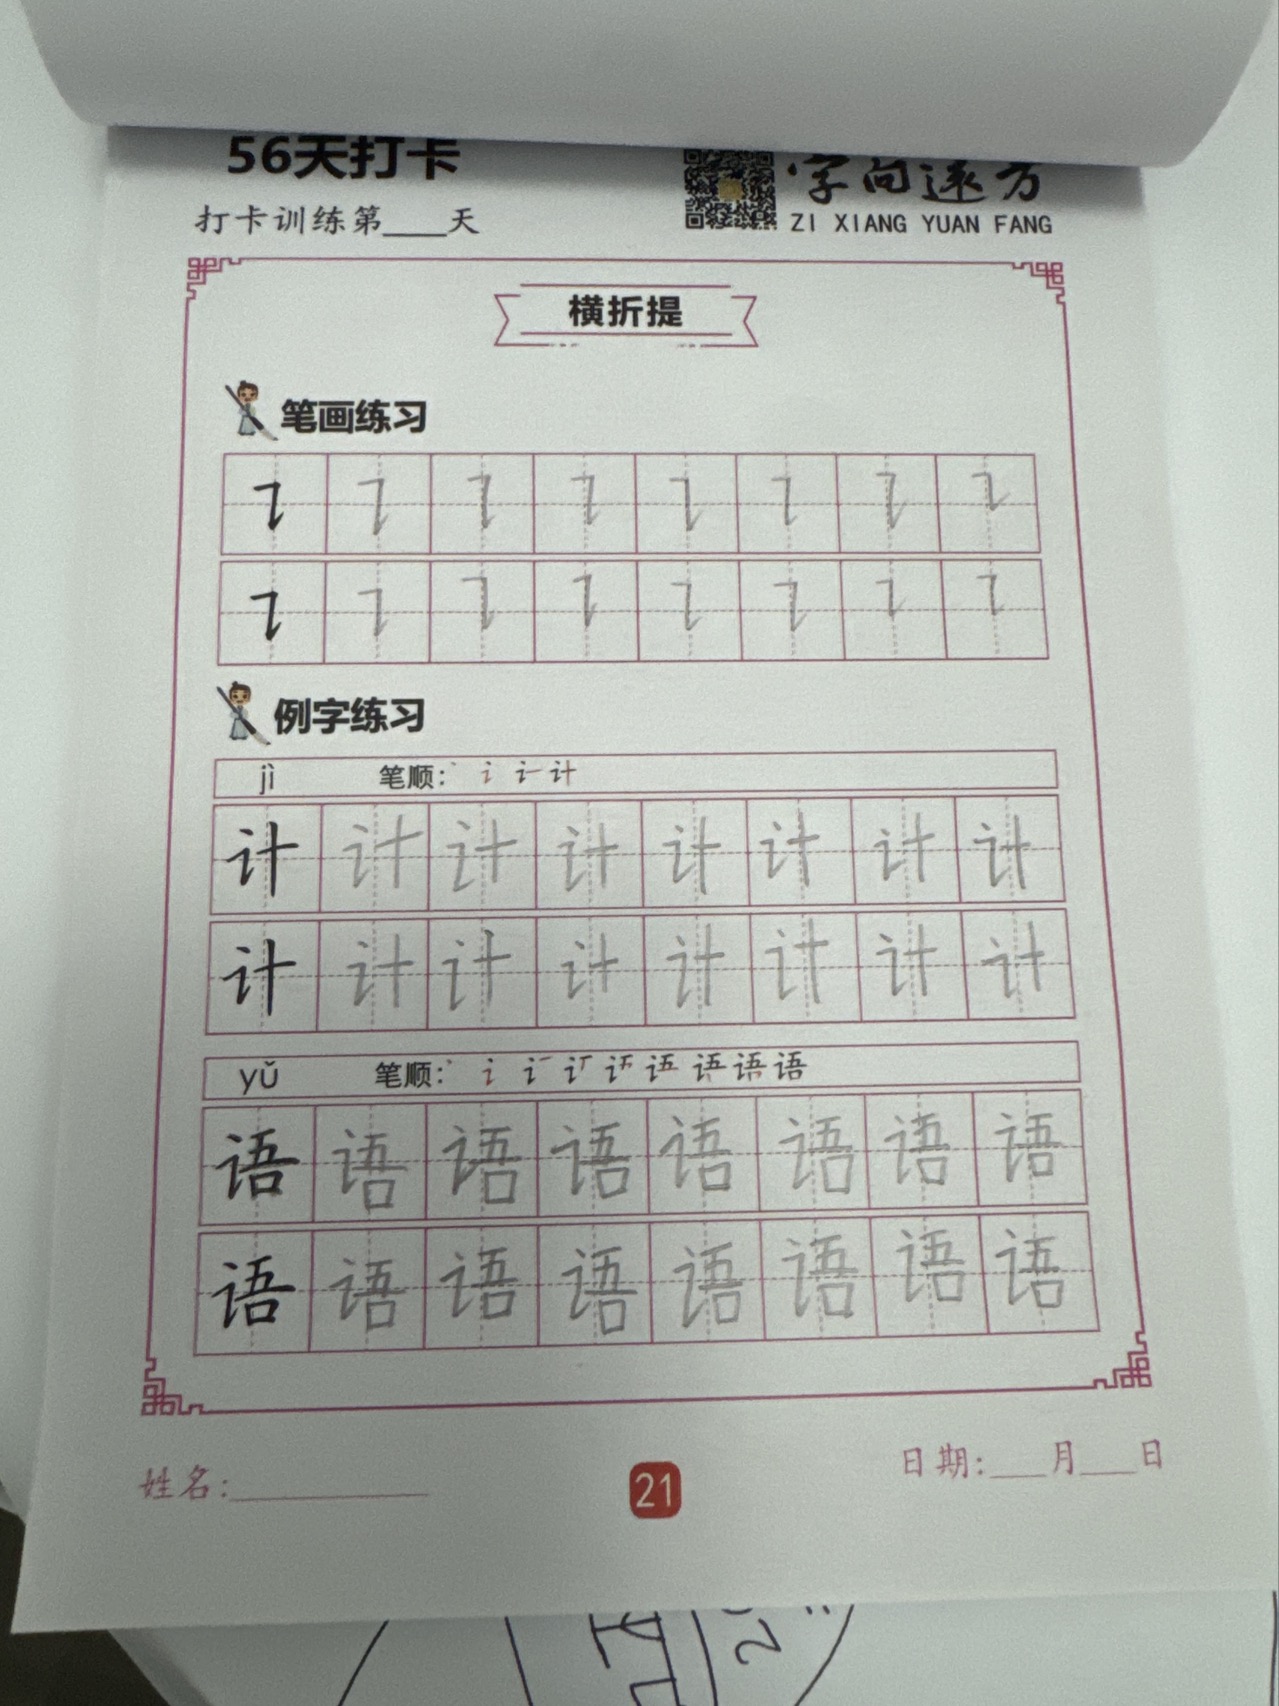 56天打卡
字向远方
打卡训练第____天
ZI XIANG YUAN FANG
横折提
笔画练习
例字练习
jì 笔顺:
计 计 计 计 计 计 计 计
计 计 计 计 计 计 计 计
yǔ 笔顺:
语 语 语 语 语 语 语 语
语 语 语 语 语 语 语 语
姓名:____________
21
日期:___月___日